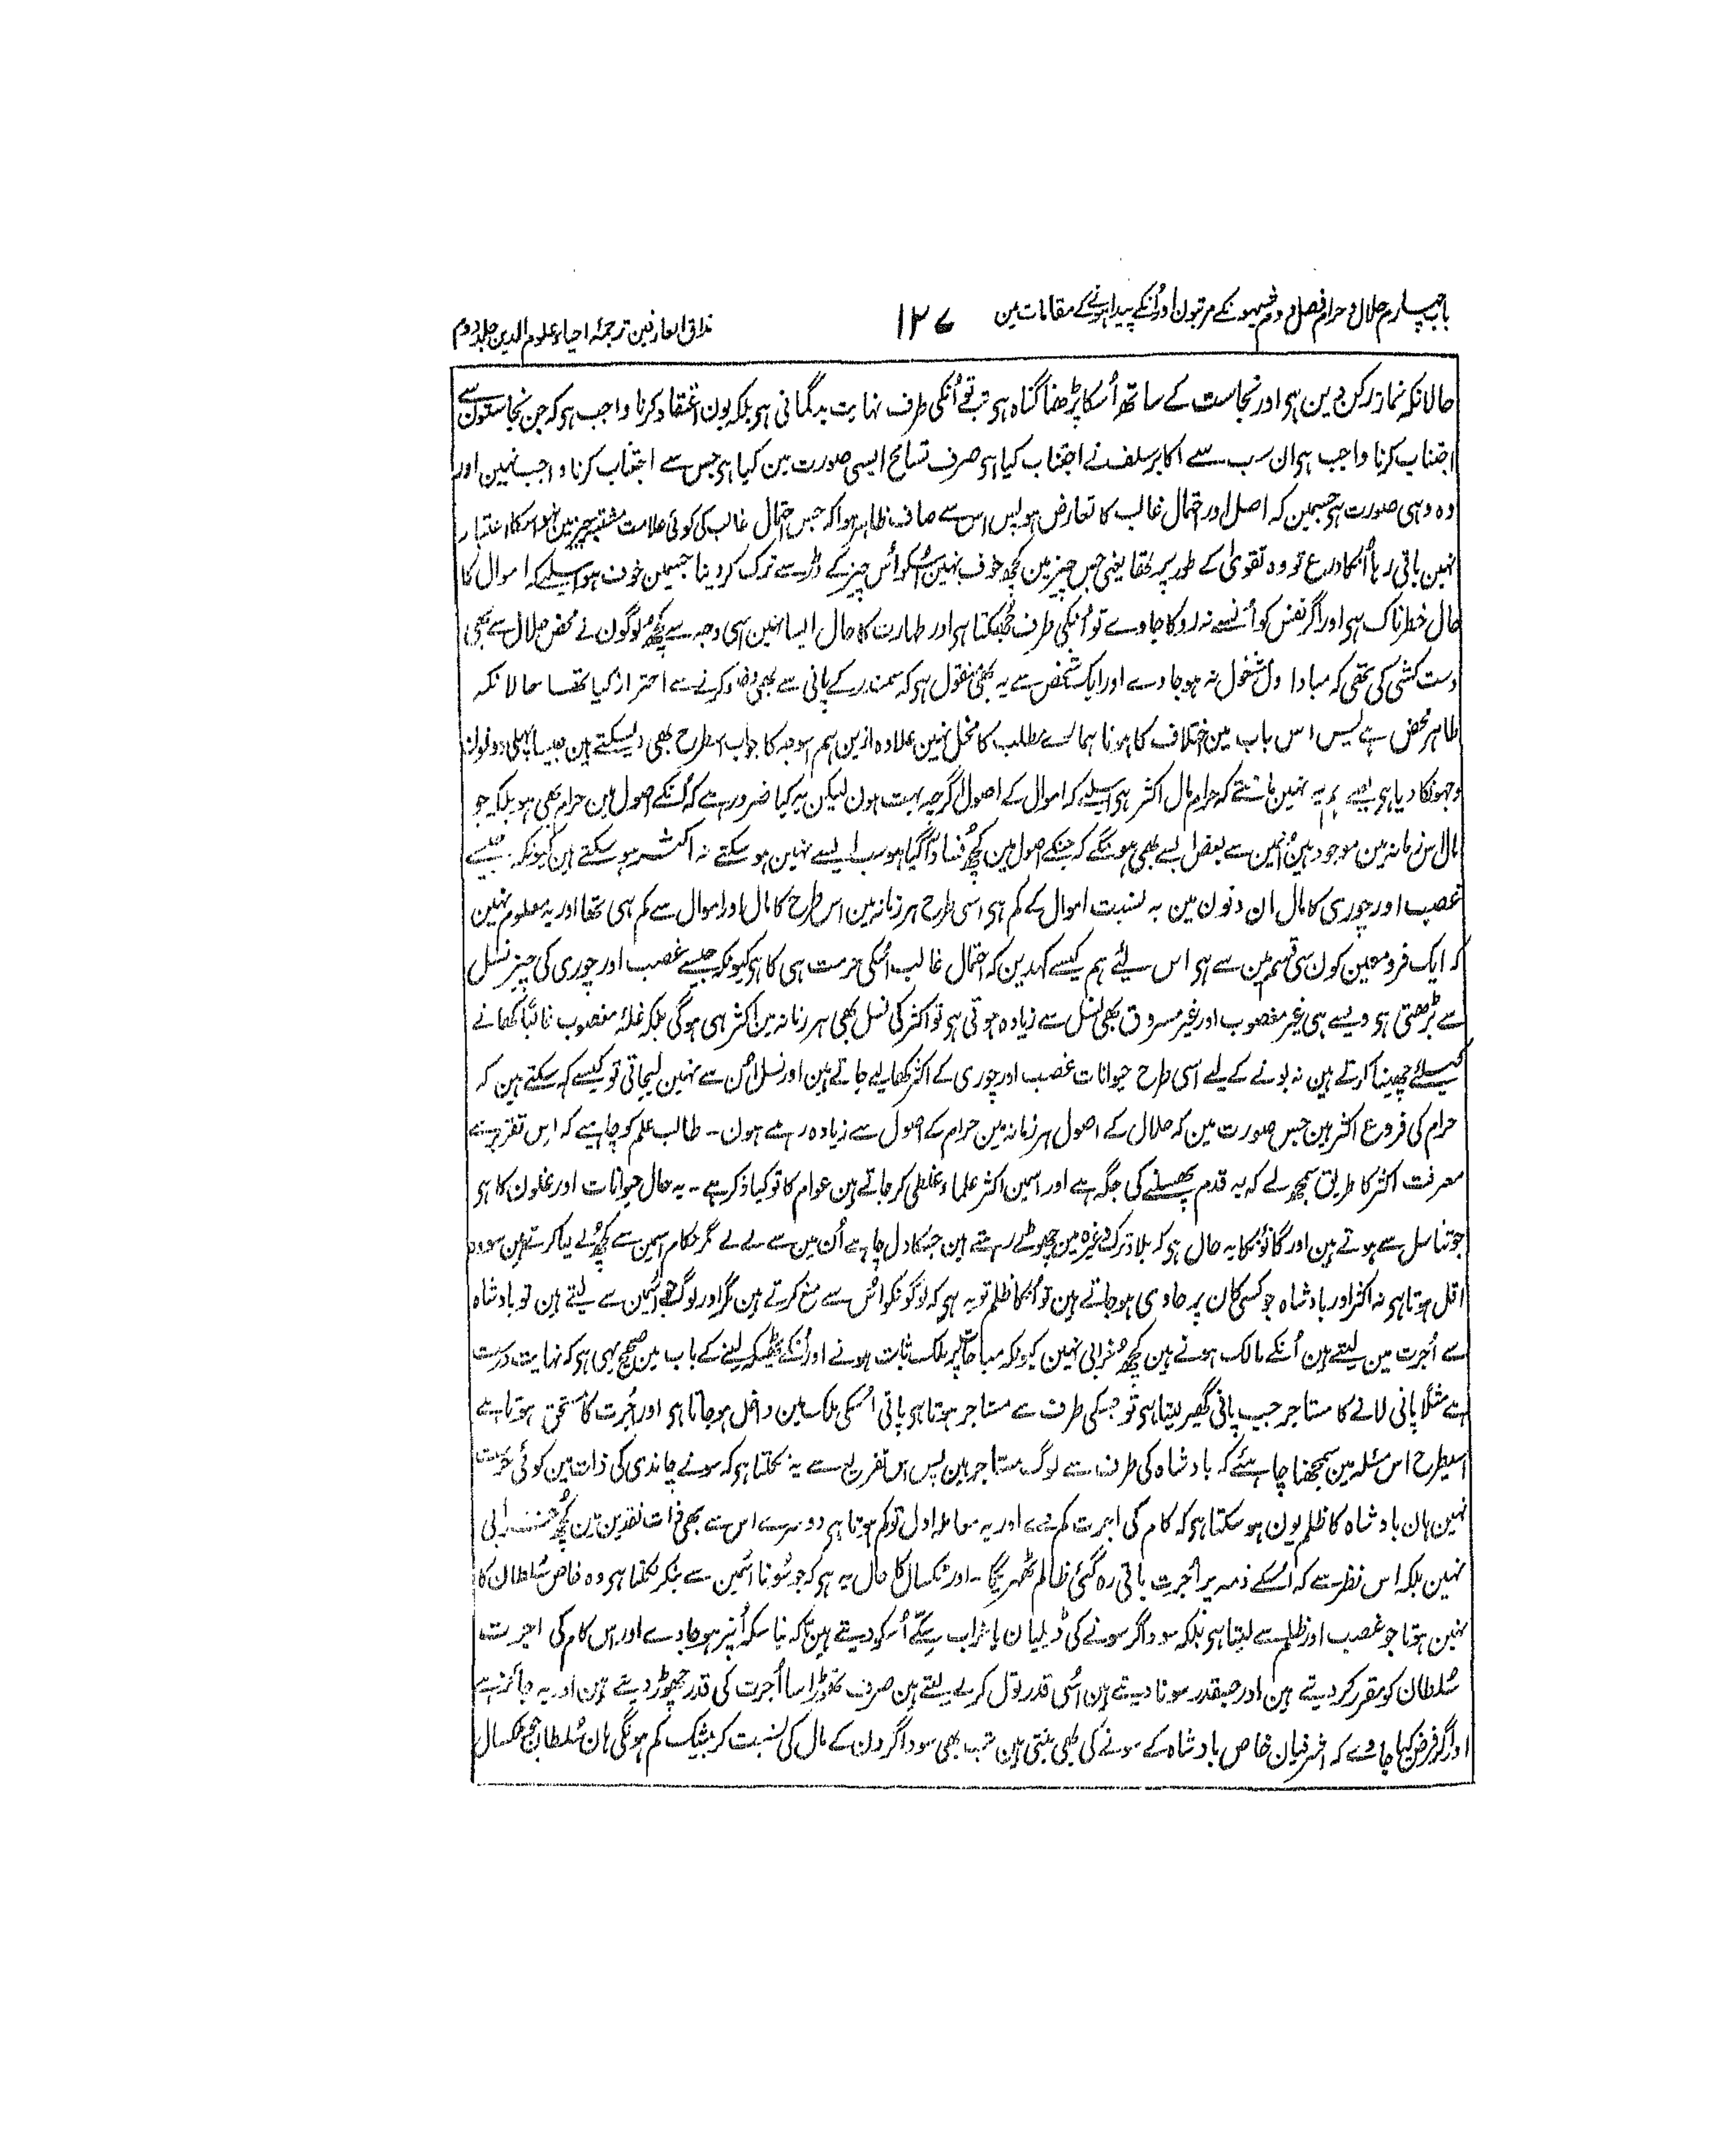 باب چہارم حلال و حرام فصل دوم شبہونکے مرتبون اور اُنکے پیدا ہونیکے مقامات مین
۱۲۷
مذاق العارفین ترجمۂ احیاء علوم الدین جلد دوم
حالانکہ نماز رکن دین ہی اور نجاست کے ساتھ اُسکا پڑھنا گناہ ہی تب تو اُنکی طرف نہایت بدگمانی ہی بلکہ یون اعتقاد کرنا واجب ہو کہ جن نجاستون سے
اجتناب کرنا واجب ہی ان سب سے اکابر سلف نے اجتناب کیا ہی صرف تسامح ایسی صورت مین کیا ہی جس سے اجتناب کرنا واجب نہین اور
وہ وہی صورت ہی جسمین کہ اصل اور احتمال غالب کا تعارض ہو پس اس سے صاف ظاہر ہوا کہ جس احتمال غالب کی کوئی علامت مشتبہ چیز مین نہو اسکا اعتبار
نہین باقی رہا اُنکا ورع تو وہ تقویٰ کے طور پر تھا یعنی جس چیز مین کچھ خوف نہین اُسکو اُس چیز کے ڈر سے ترک کر دینا جسمین خوف ہو اسلیے کہ اموال کا
حال خطرناک ہی اور اگر نفس کو اُنسے نہ روکا جاوے تو اُنکی طرف جھکتا ہی اور طہارت کا حال ایسا نہین اسی وجہ سے کچھ لوگون نے محض حلال سے بھی
دست کشی کی تھی کہ مبادا دل مشغول نہ ہو جاوے اور ایک شخص سے یہ بھی منقول ہی کہ سمندر کے پانی سے بھی وضو کرنے سے احتراز کیا تھا حالانکہ
طاہر محض ہے پس اس باب مین اختلاف کا ہونا ہمارے مطلب کا مخل نہین علاوہ ازین ہم اس وجہ کا جواب اسطرح بھی دیسکتے ہین جیسا پہلی دونون
وجہونکا دیا ہی یعنے ہم یہ نہین مانتے کہ حرام مال اکثر ہی اسلیے کہ اموال کے اصول اگرچہ بہت ہون لیکن یہ کیا ضرور ہے کہ اُنکے اصول مین حرام بھی ہو بلکہ جو
مال اس زمانہ مین موجود ہین اُنمین سے بعض ایسے بھی ہونگے کہ جنکے اصول مین کچھ فساد آگیا ہو سب ایسے نہین ہو سکتے نہ اکثر ہو سکتے ہین کیونکہ جیسے
غصب اور چوری کا مال ان دنون مین بہ نسبت اموال کے کم ہی اسی طرح ہر زمانہ مین اس طرح کا مال اور اموال سے کم ہی تھا اور یہ معلوم نہین
کہ ایک فرد معین کون سی قسم مین سے ہی اس لیے ہم کیسے کہدین کہ احتمال غالب اُسکی حرمت ہی کا ہی کیونکہ جیسے غصب اور چوری کی چیز نسل
سے بڑھتی ہی ویسے ہی غیر مغصوب اور غیر مسروق بھی نسل سے زیادہ ہوتی ہی تو اکثر کی نسل بھی ہر زمانہ مین اکثر ہی ہوگی بلکہ غلۂ مغصوب غالباً کھانے
کیلئے چھینا کرتے ہین نہ بونے کے لیے اسی طرح حیوانات غصب اور چوری کے اکثر کھالیے جاتے ہین اور نسل اُن سے نہین لیجاتی تو کیسے کہ سکتے ہین کہ
حرام کی فروع اکثر ہین جس صورت مین کہ حلال کے اصول ہر زمانہ مین حرام کے اصول سے زیادہ رہے ہون۔ طالب علم کو چاہیے کہ اس تقریر سے
معرفت اکثر کا طریق سمجھ لے کہ یہ قدم پھسلنے کی جگہ ہے اور اسمین اکثر علماء غلطی کر جاتے ہین عوام کا تو کیا ذکر ہے۔ یہ حال حیوانات اور غلون کا ہی
جو تناسل سے ہوتے ہین اور کانونکا یہ حال ہی کہ بلاد ترک وغیرہ مین چھوٹے رہتے ہین جسکا دل چاہے اُن مین سے لے لے مگر حکام اسمین سے کچھ لے لیا کرتے ہین سو وہ
اقل ہوتا ہی نہ اکثر اور بادشاہ جو کسی کان پر حاوی ہو جاتے ہین تو اُنکا ظلم تو یہ ہی کہ لوگونکو اُس سے منع کرتے ہین مگر اور لوگ جو اُسمین سے لیتے ہین تو بادشاہ
سے اُجرت مین لیتے ہین اُنکے مالک ہونے مین کچھ خرابی نہین کیونکہ مباحات پر ملک ثابت ہونے اور اُنکے ٹھیکہ لینے کے باب مین صحیح یہی ہی کہ نہایت درست
ہے مثلاً پانی لانے کا مستاجر جب پانی گھیر لیتا ہی تو جسکی طرف سے مستاجر ہوتا ہی پانی اُسکی ملک مین داخل ہو جاتا ہی اور اُجرت کا مستحق ہوتا ہے
اسیطرح اس مسئلہ مین سمجھنا چاہیئے کہ بادشاہ کی طرف سے لوگ مستاجر ہین پس اس تفریع سے یہ نکلتا ہی کہ سونے چاندی کی ذات مین کوئی حرمت
نہین ہان بادشاہ کا ظلم یون ہو سکتا ہی کہ کام کی اجرت کم دے اور یہ معاملہ اول تو کم ہوتا ہی دوسرے اس سے بھی ذات نقدین مین کچھ خرابی
نہین بلکہ اس نظر سے کہ اُسکے ذمہ پر اُجرت باقی رہ گئی ظالم ٹھہریگا۔ اور ٹکسال کا حال یہ ہی کہ جو سونا اُسمین سے بنکر نکلتا ہی وہ خاص سُلطان کا
نہین ہوتا جو غصب اور ظلم سے لیتا ہی بلکہ سوداگر سونے کی ڈلیان یا خراب سکّے اُسکو دیتے ہین تاکہ نیا سکہ اُنپر ہو جاوے اور اس کام کی اجرت
سُلطان کو مقرر کر دیتے ہین اور جسقدر سونا دیتے ہین اُسی قدر تول کر لے لیتے ہین صرف تھوڑا سا اُجرت کی قدر چھوڑ دیتے ہین اور یہ جائز ہے
اور اگر فرض کیا جاوے کہ اشرفیان خاص بادشاہ کے سونے کی بھی بنتی ہین تب بھی سوداگرون کے مال کی نسبت کر بیشک کم ہونگی ہان سُلطان جو ٹکسال